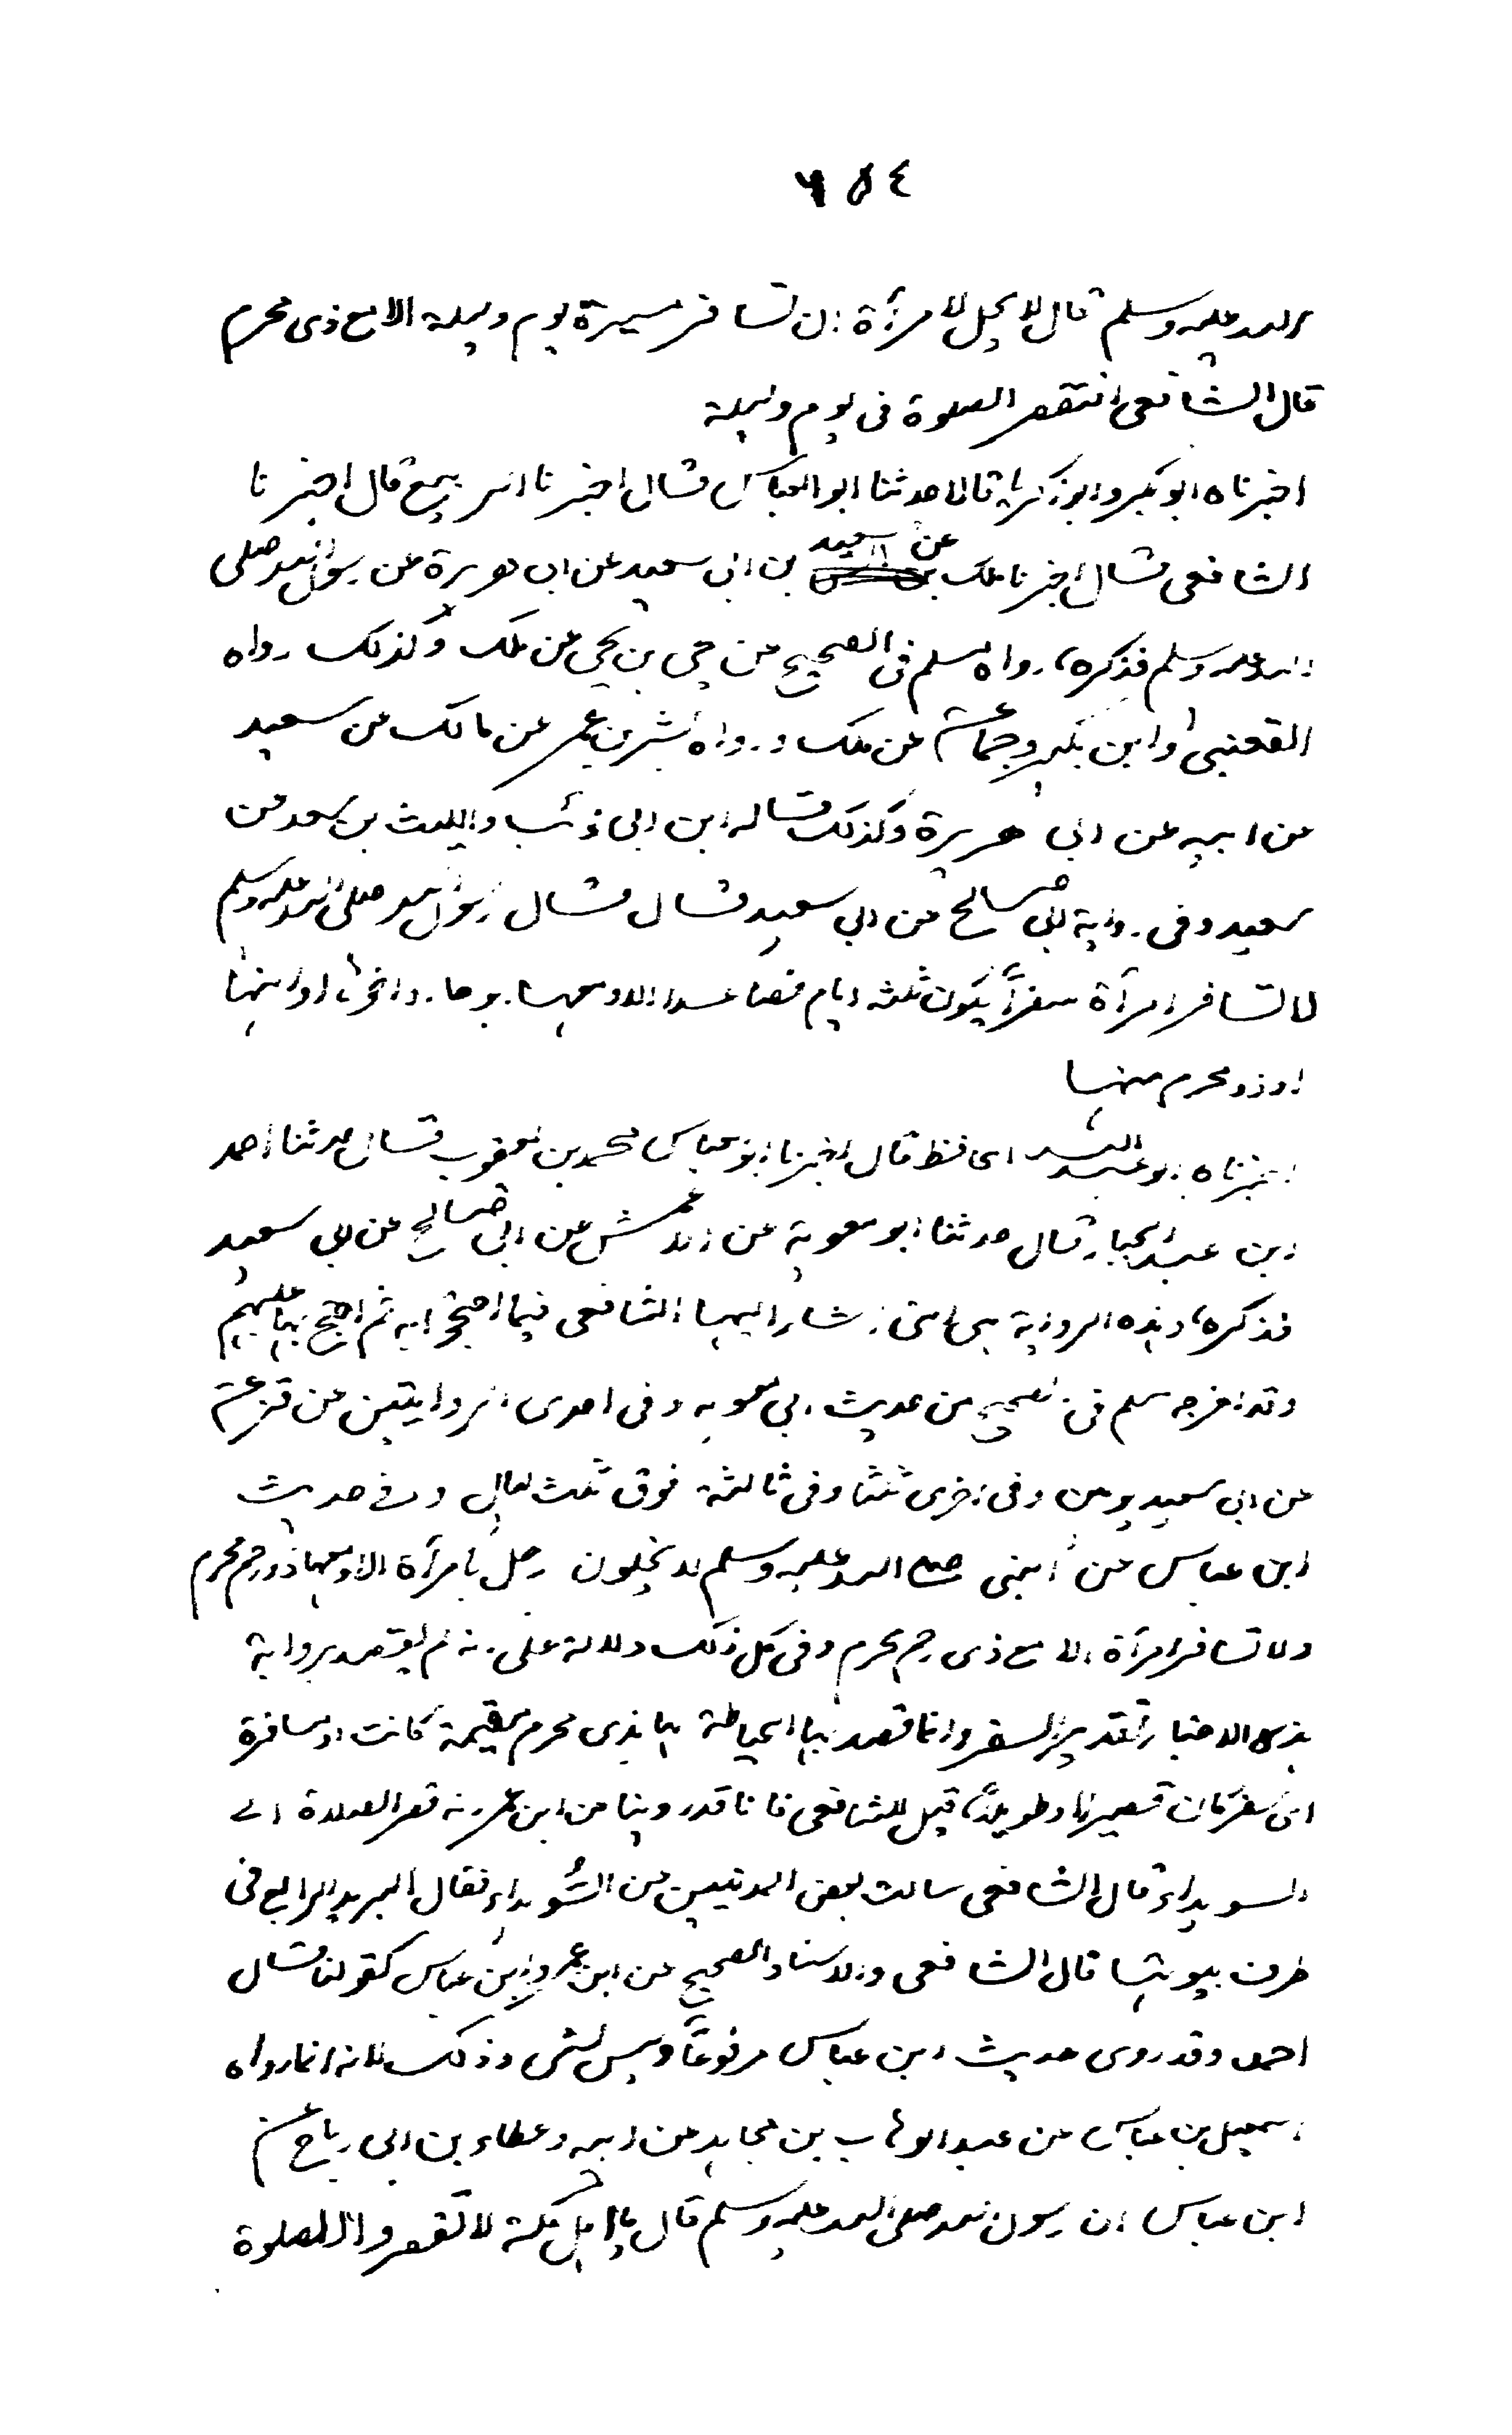 ٦٥٤
الله عليه وسلم قال لا يحل لامرأة ان تسافر مسيرة يوم وليلة الا مع ذى محرم
قال الشافعى افتقصر الصلوة فى يوم وليلة
اخبرناه ابو بكر وابو زكريا قالا حدثنا ابو العباس قال اخبرنا الربيع قال اخبرنا
الشافعى قال اخبرنا ملك عن سعيد بن ابى سعيد عن ابى هريرة عن رسول الله صلى
الله عليه وسلم فذكره، رواه مسلم فى الصحيح عن يحيى بن يحيى عن ملك وكذلك رواه
القعنبى وابن بكير وجماعة عن ملك ورواه بشر بن عمر عن مالك عن سعيد
عن ابيه عن ابى هريرة وكذلك قاله ابن ابى ذئب والليث بن سعد عن
سعيد وفى رواية ابى صالح عن ابى سعيد قال قال رسول الله صلى الله عليه وسلم
لا تسافر امرأة سفراً يكون ثلثة ايام فصاعدا الا ومعها ابوها واخوها او ابنها
او ذو محرم منها
اخبرناه ابو عبد الله الحافظ قال اخبرنا ابو العباس محمد بن يعقوب قال حدثنا احمد
ابن عبد الجبار قال حدثنا ابو معوية عن الاعمش عن ابى صالح عن ابى سعيد
فذكره، وهذه الرواية هى التى اشار اليها الشافعى فيما احتجوا به ثم احتج بها عليهم
وقد اخرجه مسلم فى الصحيح من حديث ابى معوية وفى احدى الروايتين عن قزعة
عن ابى سعيد يومين وفى اخرى ثلثا وفى ثالثة فوق ثلث ليال وفى حديث
ابن عباس عن النبى صلى الله عليه وسلم لا يخلون رجل بامرأة الا ومعها ذو رحم محرم
ولا تسافر امرأة الا مع ذى رحم محرم وفى كل ذلك دلالة على انه لم يقصد برواية
هذه الاخبار تقدير السفر وانما قصد بها الحياطة لها بذى محرم مقيمة كانت او مسافرة
اى سفر كان قصيرا وطويلاً، قيل للشافعى فانا قد روينا عن ابن عمر انه قصر الصلاة الى
السويداء قال الشافعى سالت بعض المدنيين عن السُّويداء فقال البريد الرابع فى
طرف بيوتها قال الشافعى والاسناد الصحيح عن ابن عمر وابن عباس كقولنا قال
احمد وقد روى حديث ابن عباس مرفوعاً وليس بشى وذلك لانه انما رواه
اسمعيل بن عياش عن عبد الوهاب بن مجاهد عن ابيه وعطاء بن ابى رباح عن
ابن عباس ان رسول الله صلى الله عليه وسلم قال يا اهل مكة لا تقصروا الصلوة